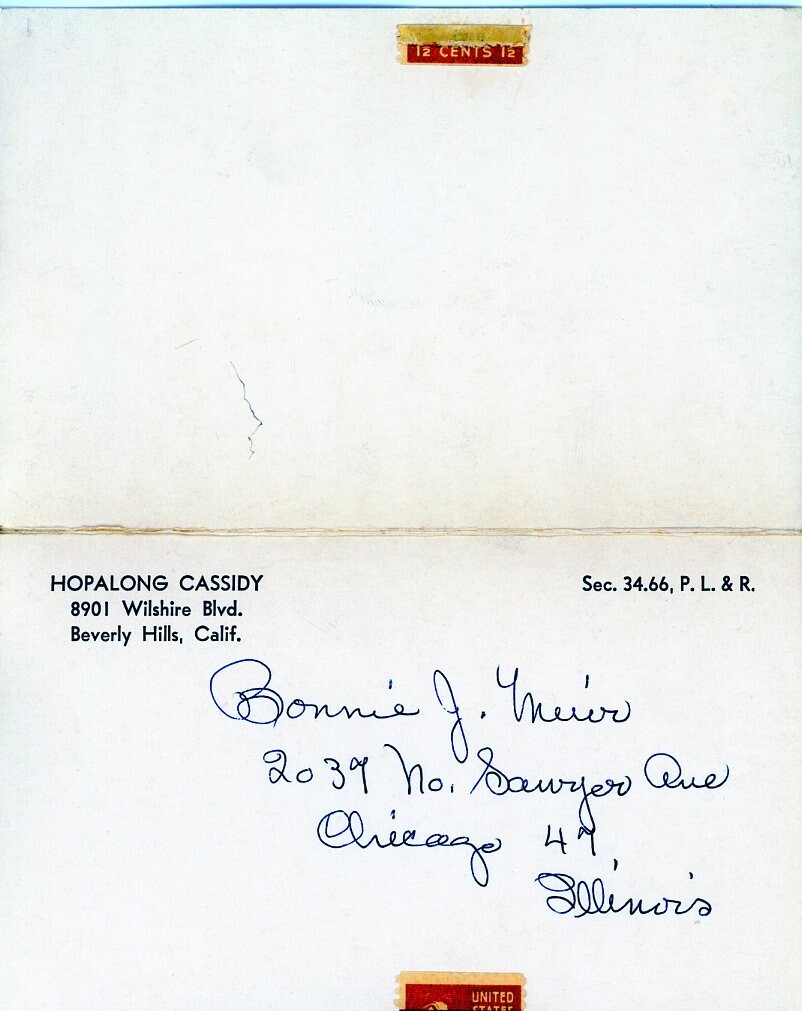 1½ CENTS 1½
HOPALONG CASSIDY
8901 Wilshire Blvd.
Beverly Hills, Calif.
Sec. 34.66, P. L. & R.
Bonnie J. Meier
2037 No. Sawyer Ave
Chicago 47,
Illinois
UNITED
STATES